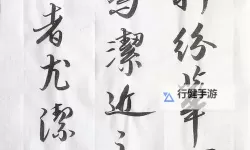 紛華
潔近之
者尤潔
行健手游